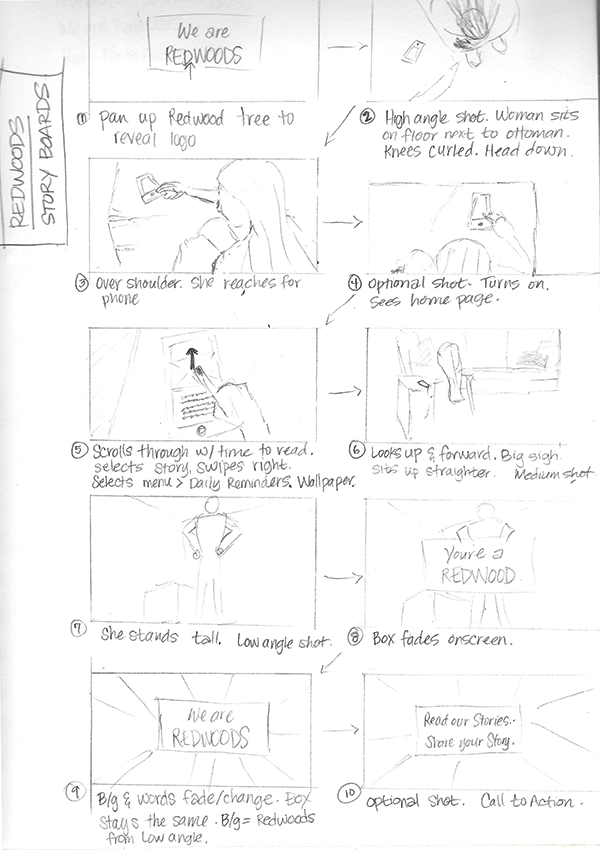 REDWOODS
STORY BOARDS
We are
REDWOODS
① Pan up Redwood tree to
reveal logo
② High angle shot. Woman sits
on floor next to ottoman.
Knees curled. Head down.
③ Over shoulder. She reaches for
phone
④ Optional shot. Turns on.
Sees home page.
⑤ Scrolls through w/ time to read.
selects story, swipes right.
Selects menu > Daily Reminders, Wallpaper.
⑥ Looks up & forward. Big sigh
Sits up straighter. Medium shot
⑦ She stands tall. Low angle shot.
You're a
REDWOOD
⑧ Box fades onscreen.
We are
REDWOODS
⑨ B/g & words fade/change. Box
stays the same. B/g = Redwoods
from Low angle.
Read our Stories..
Share your Story.
⑩ Optional Shot. Call to Action.